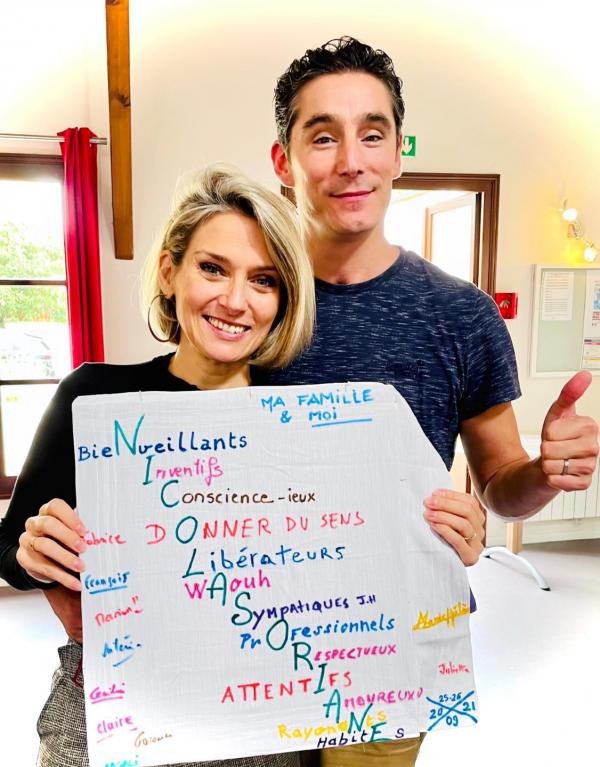 MA FAMILLE
& MOI
BieNveillants
Inventifs
Conscience-ieux
DONNER DU SENS
Fabrice
Libérateurs
François
WAouh
Marion
SYMPATIQUES J.H
PrOfessionnels
RESPECTUEUX
Juliette
ATTENTIFS
AMOUREUX
Claire
RayonANts
HabitEs
25-26
20 21
09